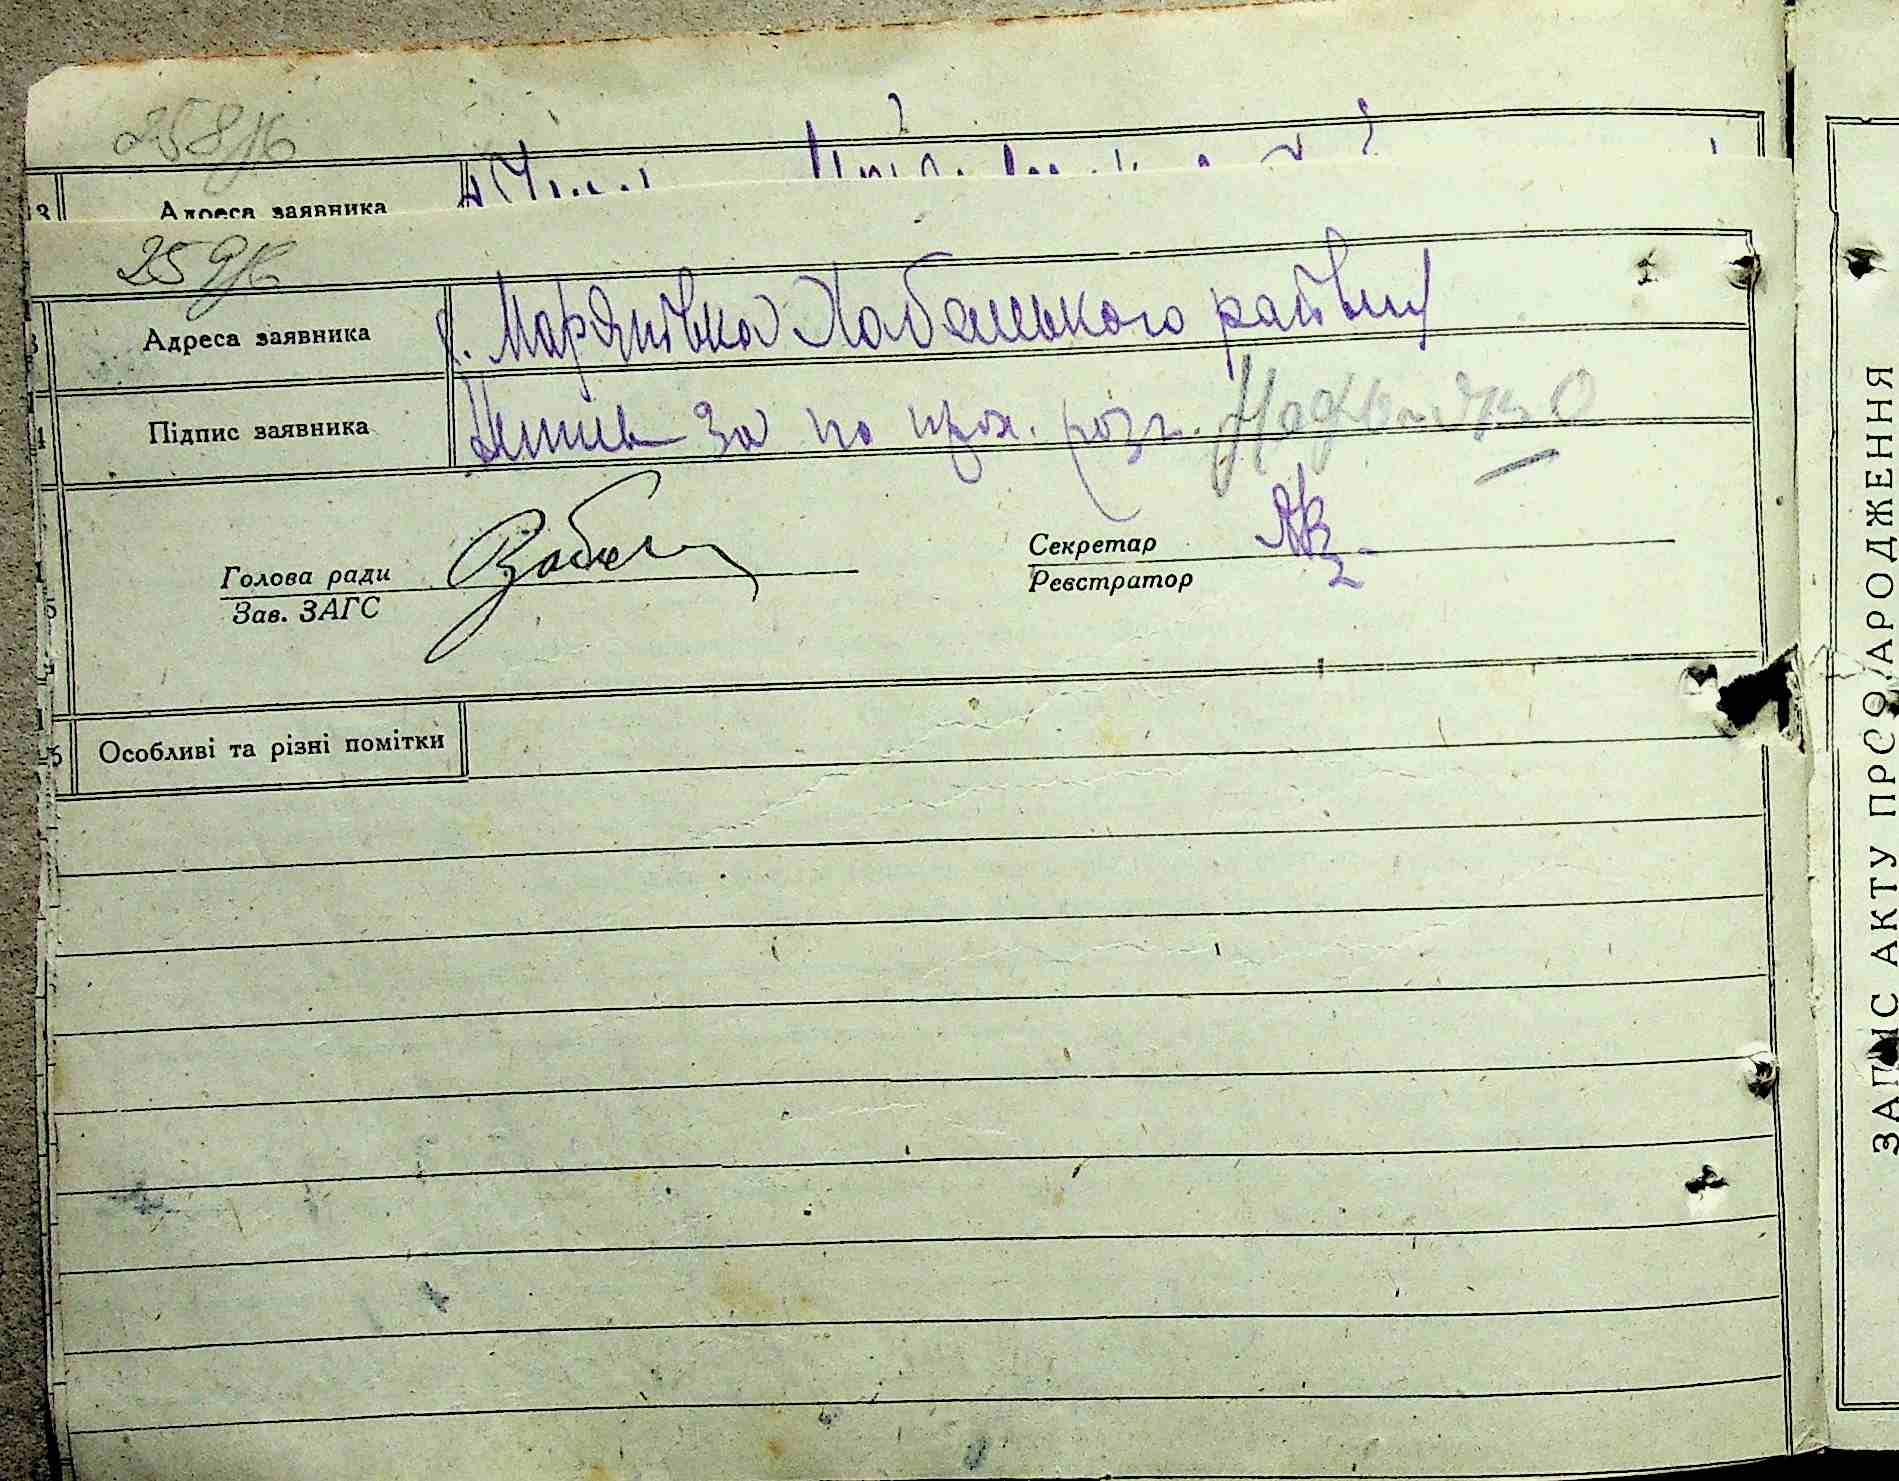 258/16
Адреса заявника
259/16
Адреса заявника с. Мар'янівка Хабенського району
Підпис заявника за по прох. розп.
Голова ради
Зав. ЗАГС
Секретар
Реєстратор
Особливі та різні помітки
ЗАПИС АКТУ ПРО НАРОДЖЕННЯ